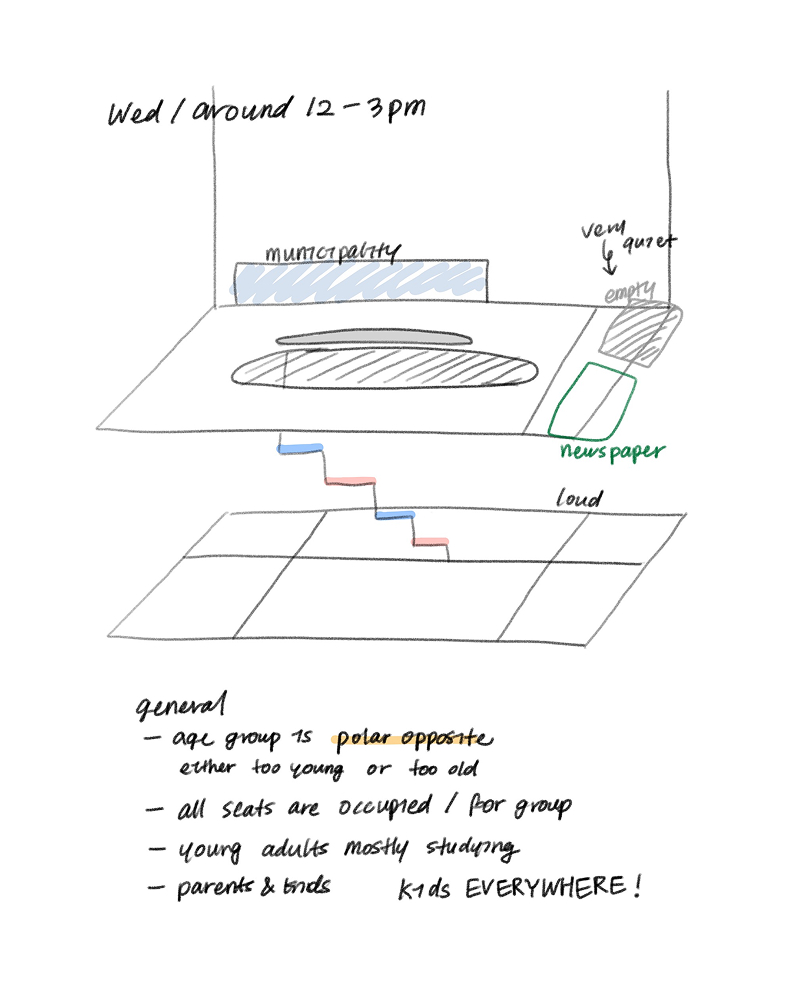 Wed / around 12 – 3pm
municipality
very
quiet
empty
newspaper
loud
general
– age group is polar opposite
either too young or too old
– all seats are occupied / for group
– young adults mostly studying
– parents & kids kids EVERYWHERE!